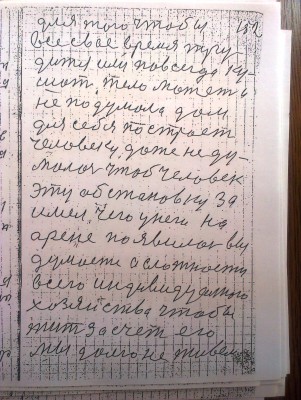 для того чтобы 152
все свое время труд
дится или навсегда ку-
шат. тело может и
не подумала дом
для себя построет
человеку, даже не ду-
малог чтоб человек
эту обстановку за
имел, чего у него на
арене появилог вы
думаете о сложности
всего индивидуалного
хозяйства чтобы
жит за счет его
мы долго не живем